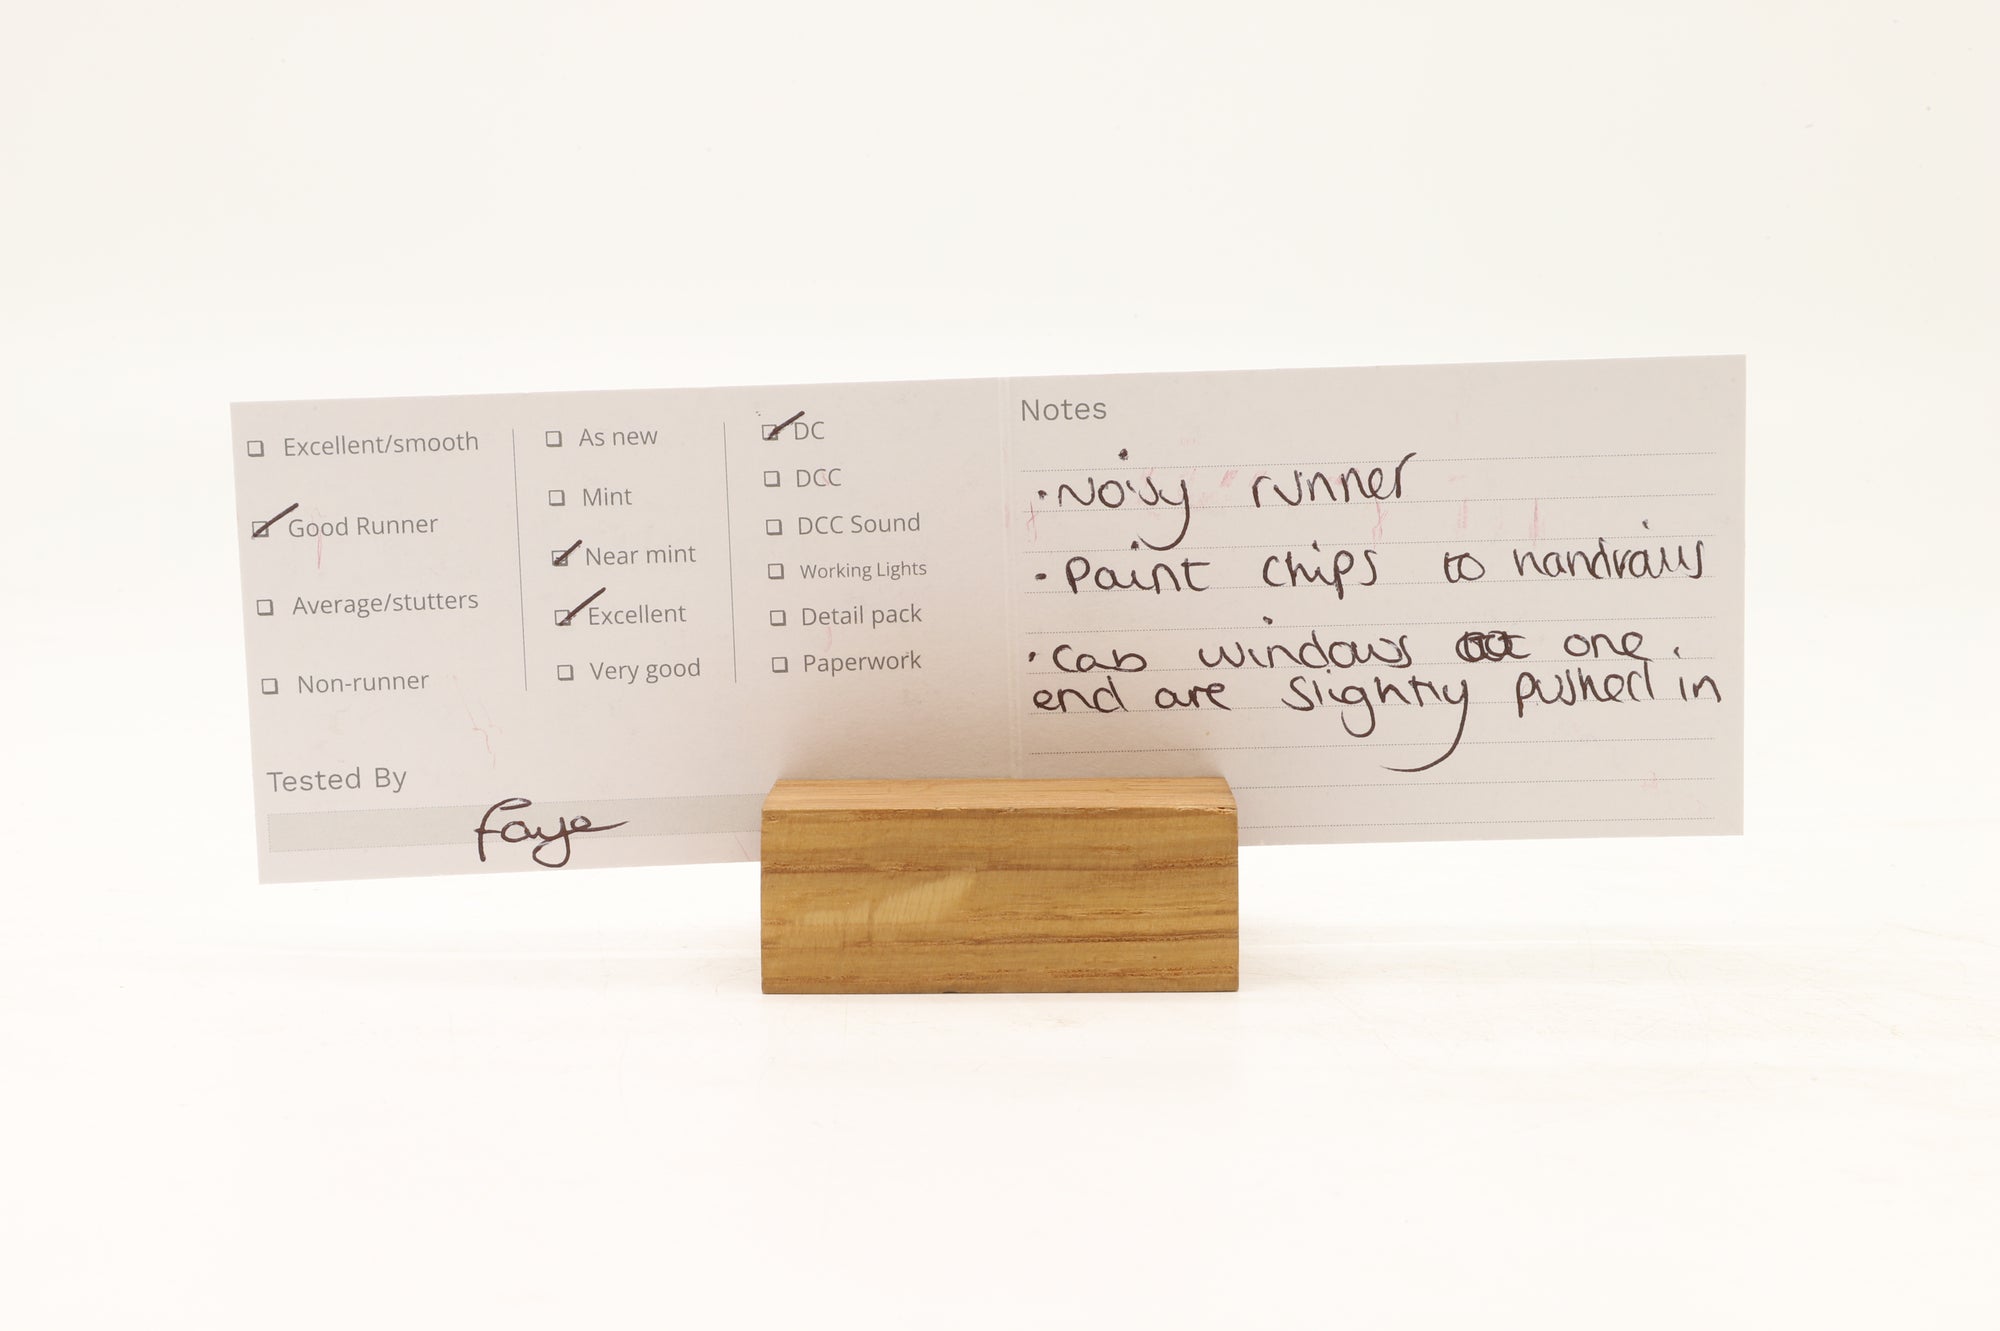 Excellent/smooth
Good Runner
Average/stutters
Non-runner
As new
Mint
Near mint
Excellent
Very good
DC
DCC
DCC Sound
Working Lights
Detail pack
Paperwork
Tested By
Faye
Notes
• Noisy runner
• Paint chips to handrails
• Cab windows one
end are slightly pushed in